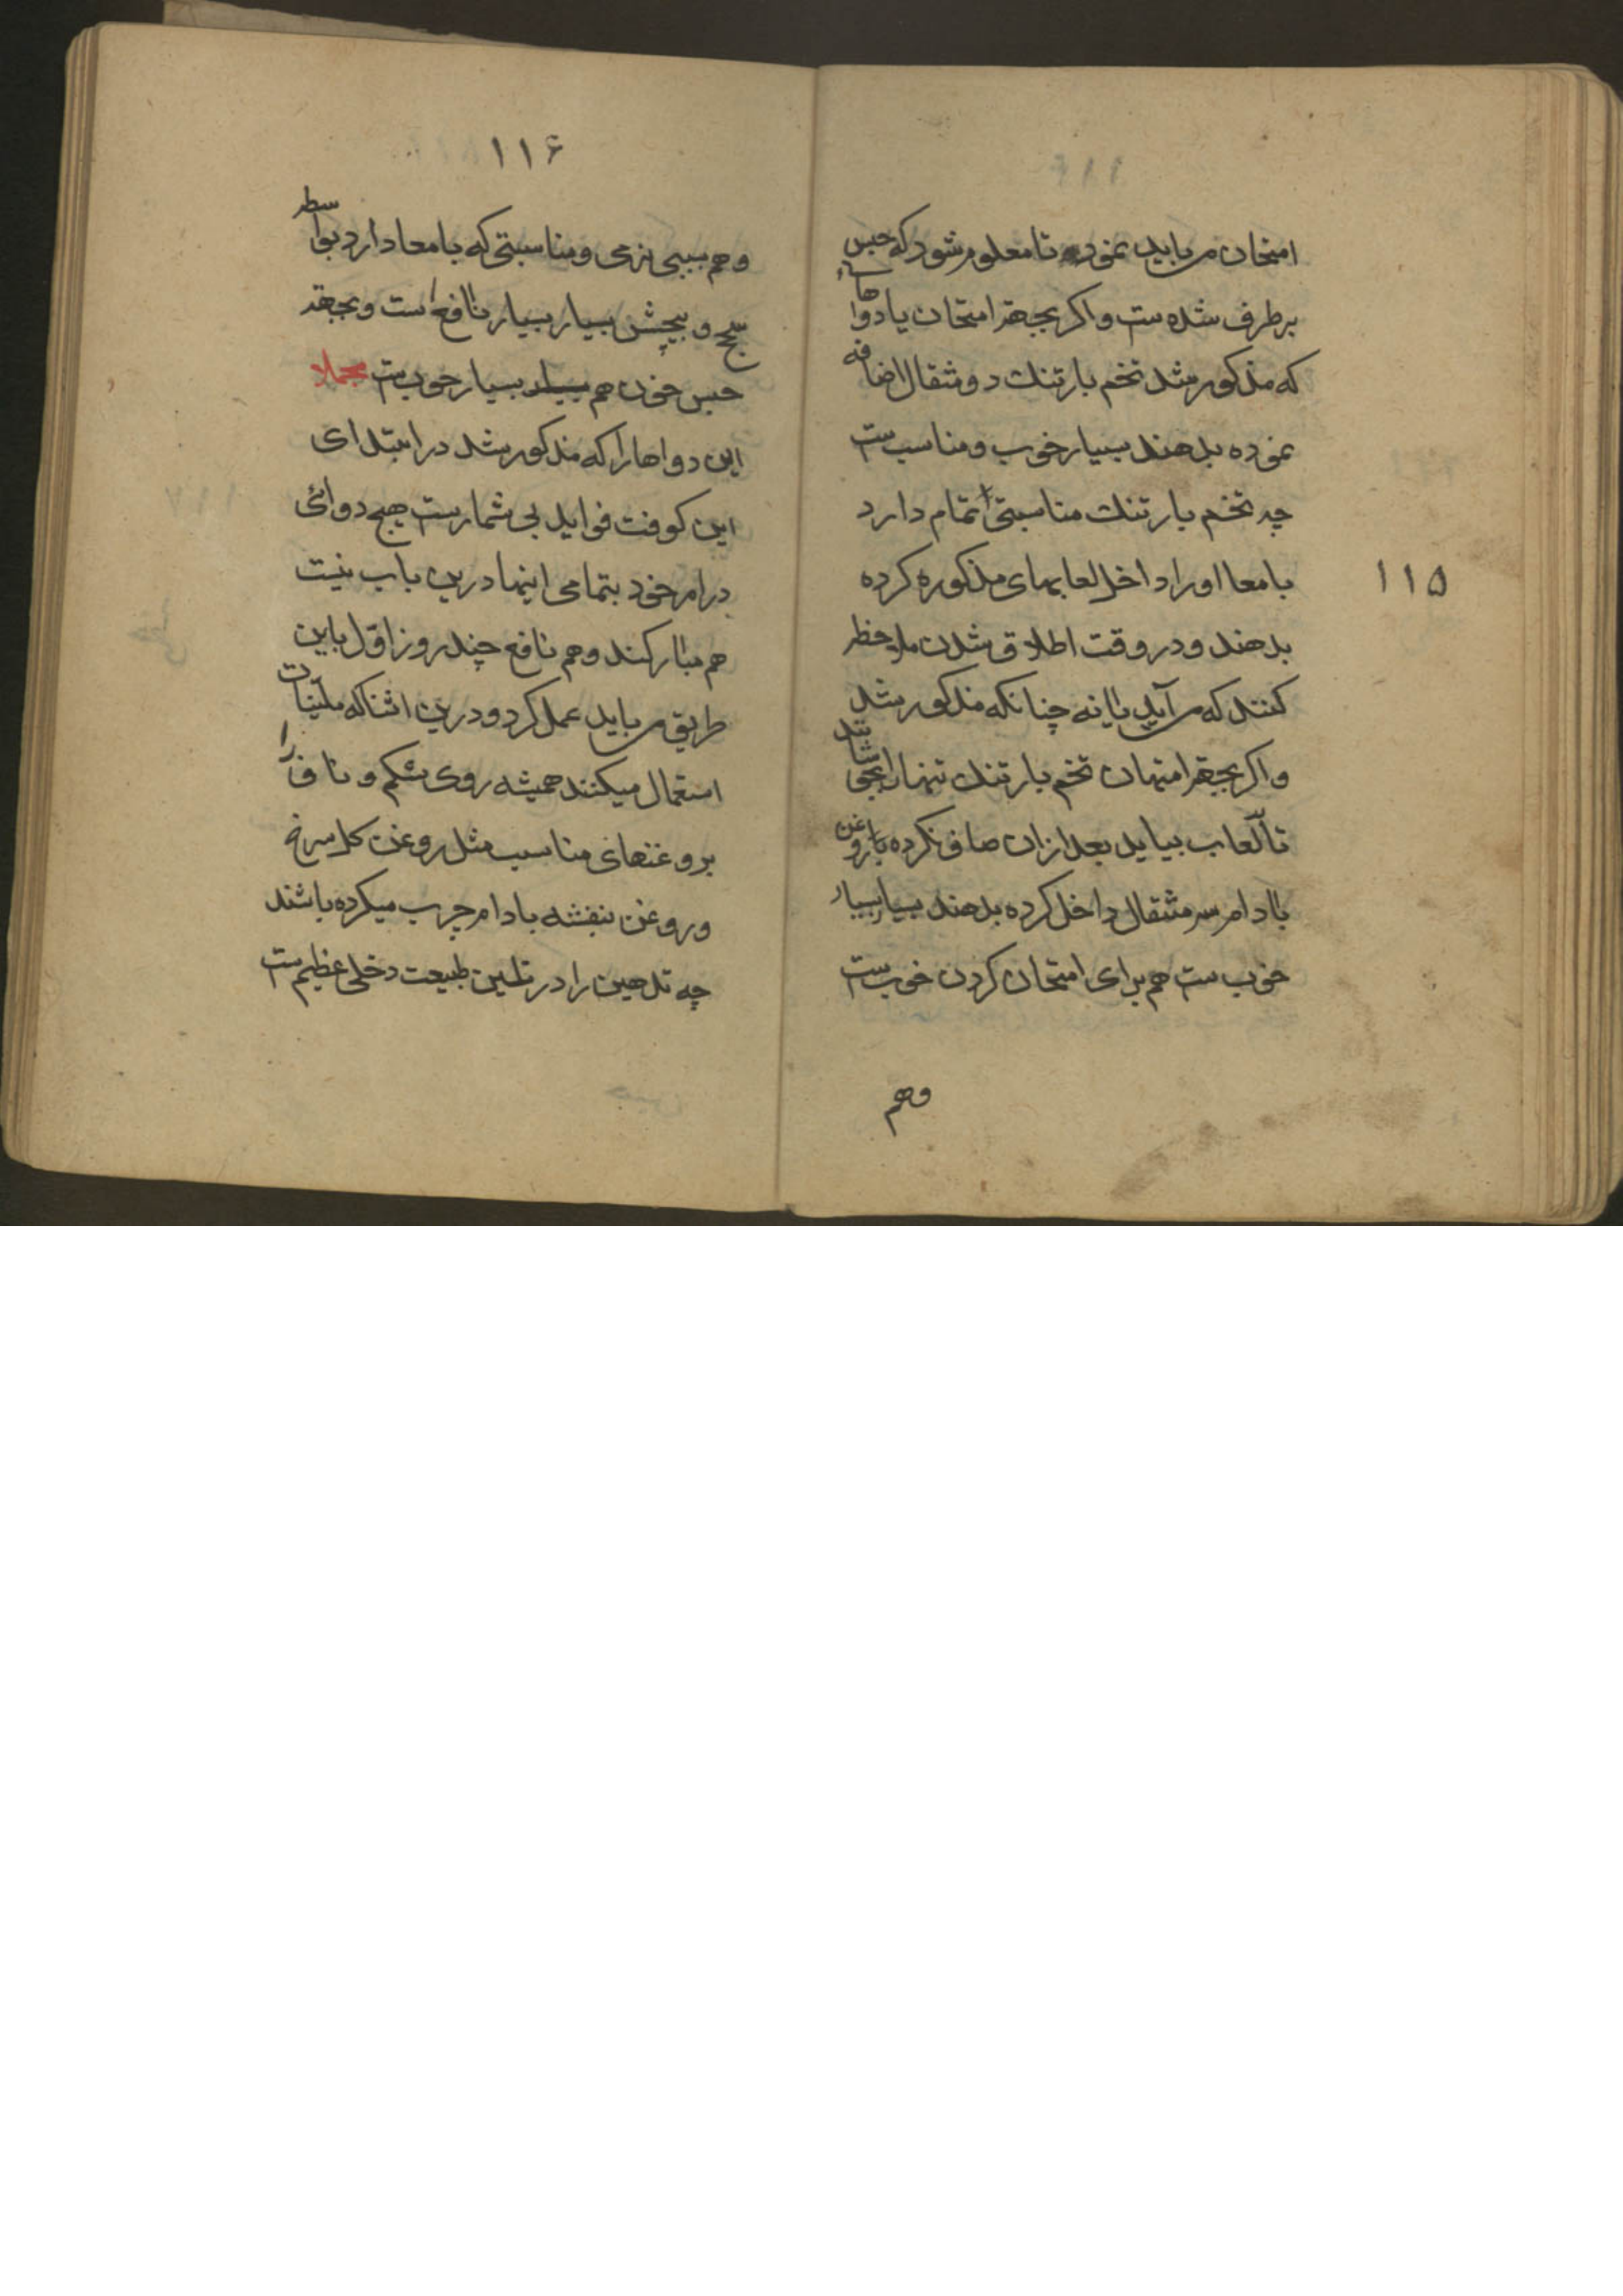 امتحان می باید نمود تا معلوم شود که حبس
برطرف شده ست و اکر بجهة امتحان یا دواهاء
که مذکور شد تخم بارتنك دو مثقال اضافه
نموده بدهند بسیار خوب و مناسب ست
چه تخم بارتنك مناسبتی تمام دارد
۱۱۵
بامعا او را داخل لعابهای مذکوره کرده
بدهند و در وقت اطلاق شدن ملاحظه
کنند که می آید یا نه چنانکه مذکور شد
و اکر بجهة امتهان تخم بارتنك تنها را بجوشانند
تا لعاب بیاید بعد ازان صاف کرده با روغن
بادام سه مثقال داخل کرده بدهند بسیار بسیار
خوب ست هم برای امتحان کردن خوب ست
وهم
۱۱۶
وهم بسبب نرمی و مناسبتی که بامعا دارد بواسطه
سحج و پیچش بسیار بسیار نافع است و بجهة
حبس خون هم بسیار خوب ست مجملا
این دواها را که مذکور شد در ابتدای
این کوفت فواید بی شمار ست هیچ دوائی
در امر خود بتمامی اینها درین باب نیست
هم مبارکند و هم نافع چند روز اول باین
طریق می باید عمل کرد و درین اثنا که ملینات
استعمال میکنند همیشه روی شکم و ناف را
بروغنهای مناسب مثل روغن کل سرخ
و روغن بنفشه بادام چرب میکرده باشند
چه تدهین را در تلیین طبیعت دخلی عظیم ست